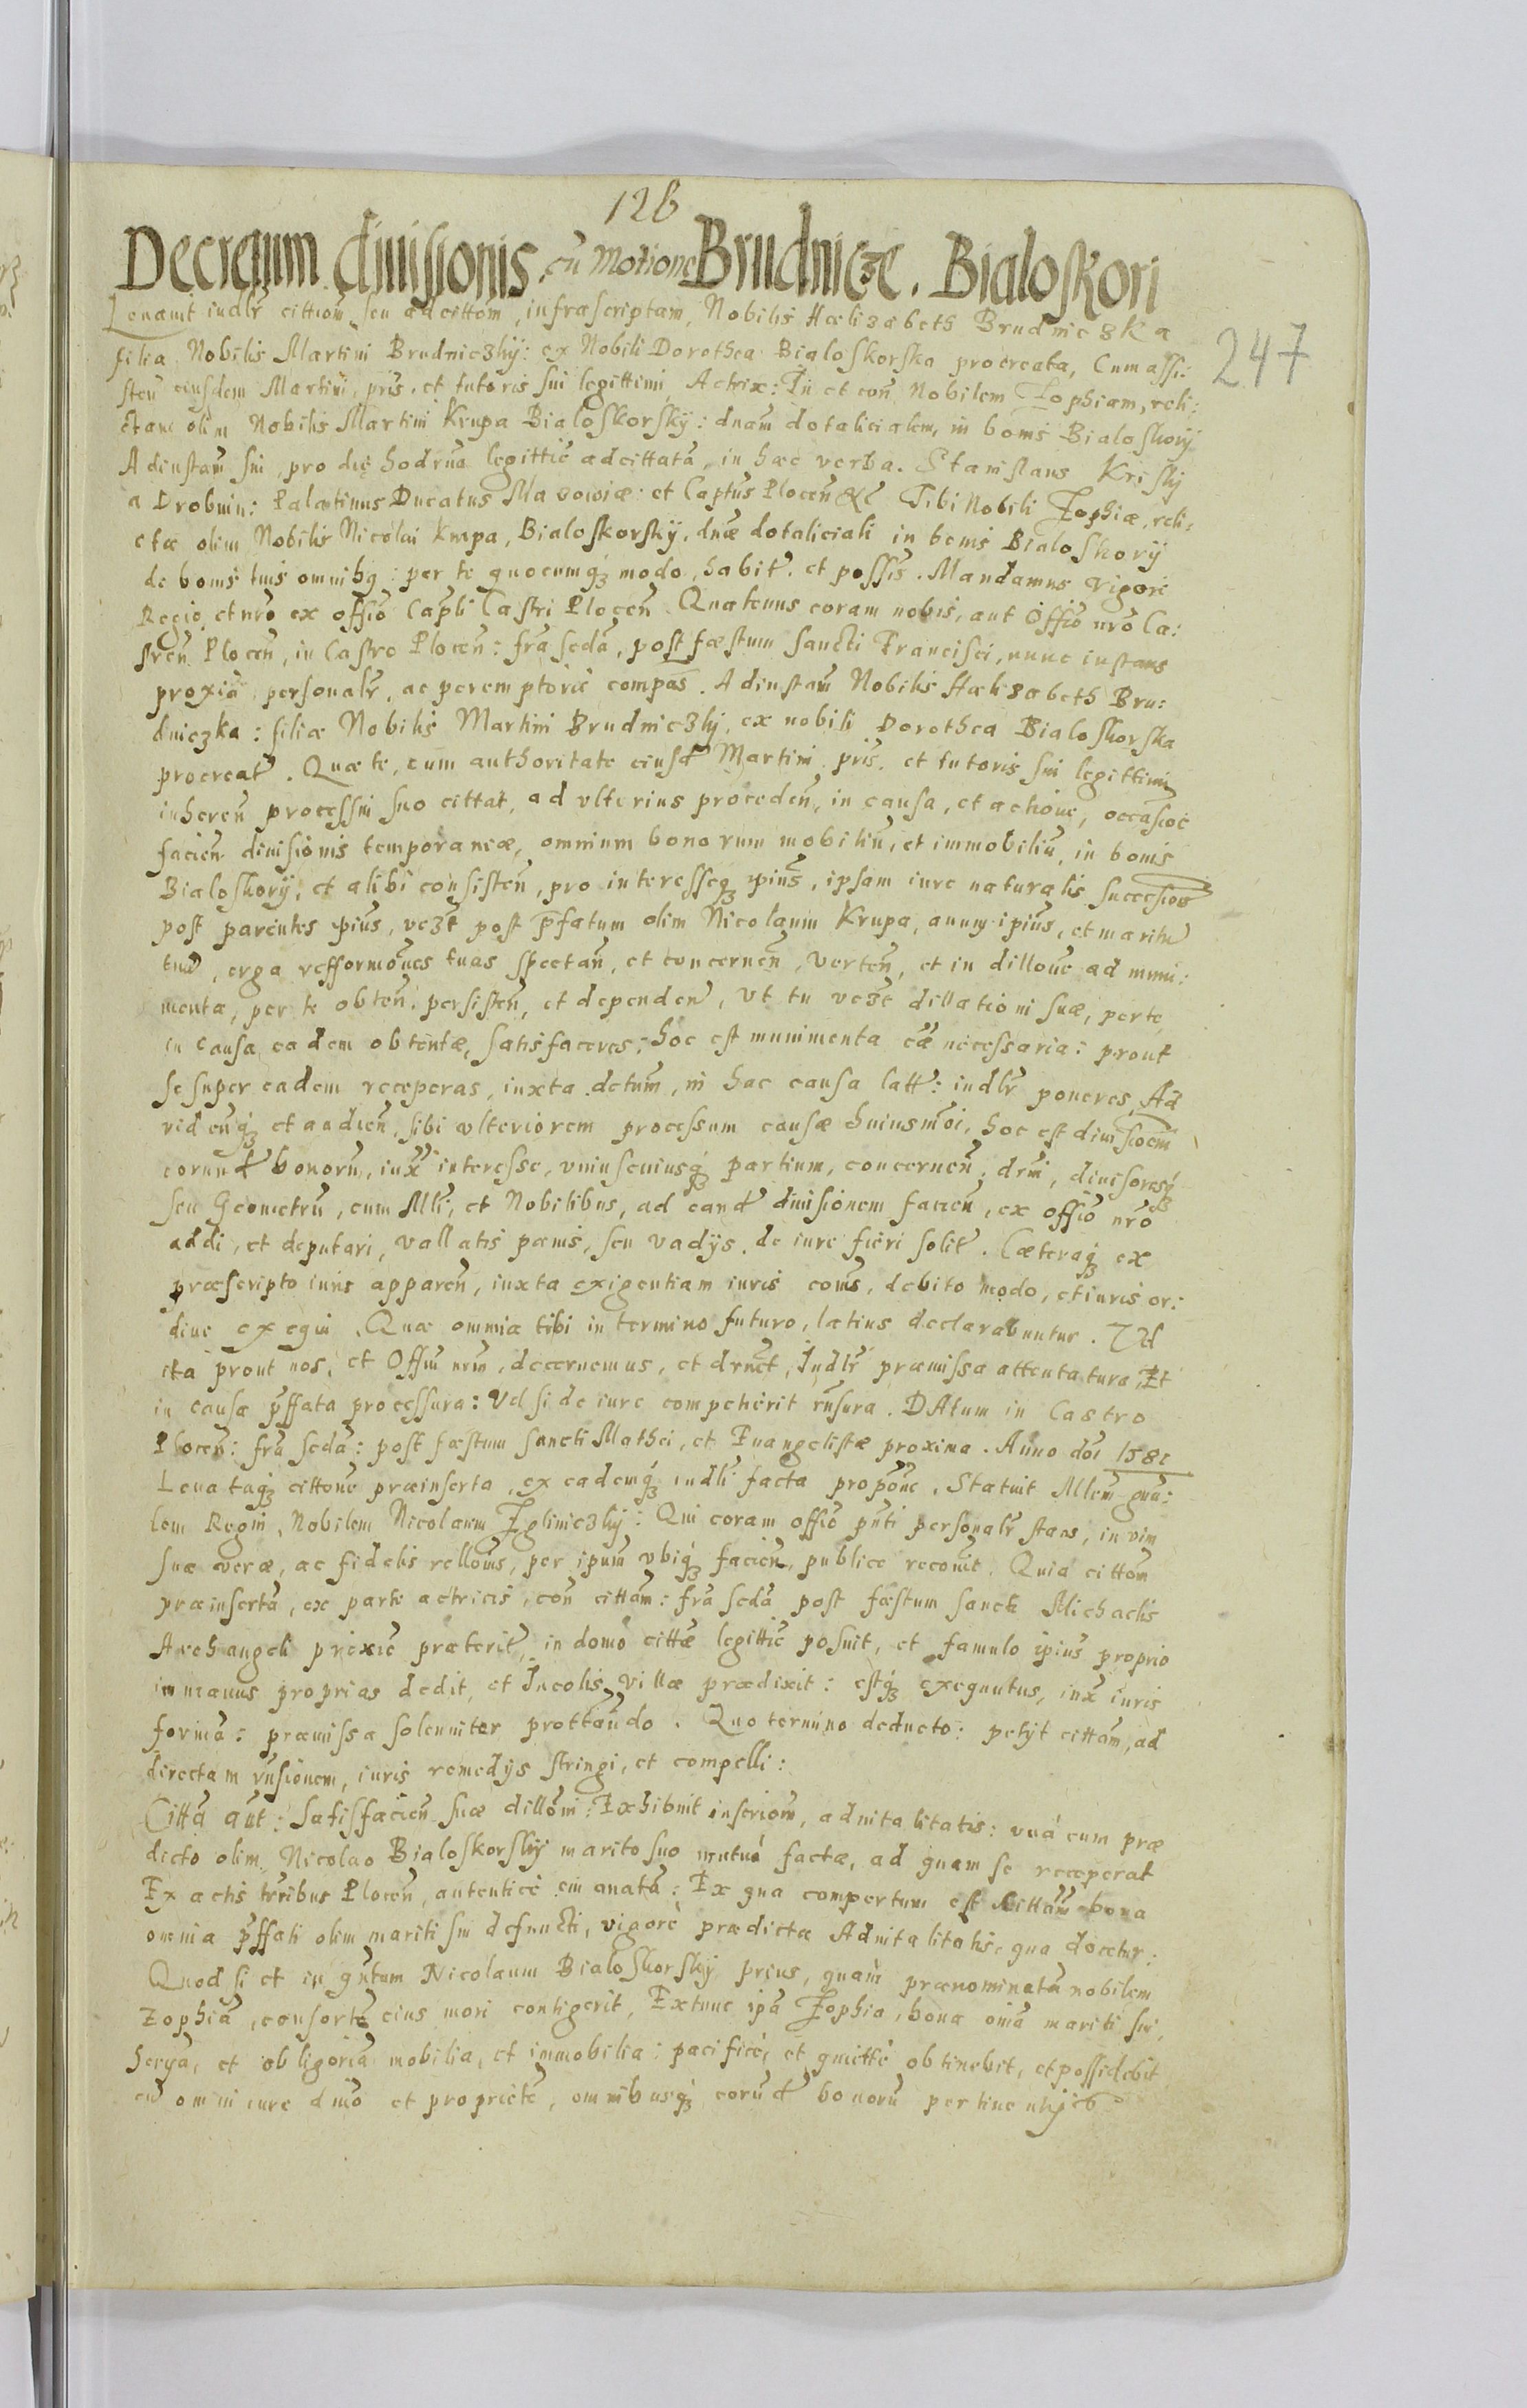 126
Decretum diuisionis cũ Motione Brudnicze. Bialoskori
247
Leuauit iudlr̃ cittiom̃ seu adcittom̃, infrascriptam, Nobilis Hælizabeth Brudniczka
filia Nobilis Martini Brudniczkÿ: ex Nobili Dorothea Bialoskorska procreata, Cum assi:
sten̄ eiusdem Martini, pris̃, et tutoris sui legittimi, Actrix: In et con̄ Nobilem Zophiam, reli:
ctam olim Nobilis Martini Krupa Bialoskorskÿ: dnam̃ dotalicialem, in bonis Bialoskorÿ
Adinstam̃ sui, pro die hodrna legittiẽ adcittatã, in hæc verba. Stanislaus Kriskj
a Drobnin: Palatinus Ducatus Masowiæ: et Captus̃ Plocen̄ &c Tibi Nobili Zophiæ, reli:
ctæ olim Nobilis Nicolai Krupa, Bialoskorskÿ, dnæ̃ dotaliciali in bonis Bialoskorÿ
de bonis tuis omnibg: per te quocumqȝ modo, habit̃. et possis̃. Mandamus vigore
Regio, et nrõ ex offiõ Capłi Castri Plocen̄. Quatenus coram nobis, aut Offiõ nrõ Ca:
stren̄ Plocen̄, in Castro Plocen̄: frã sedã, post fæstum Sancti Francisci, nunc instans
proxiã personalr̃, ac peremptorie compas̃. Adinstam̃ Nobilis Hælizabeth Bru:
dniczka: filiæ Nobilis Martini Brudniczkj, ex nobili Dorothea Bialoskorska
procreat̃. Quæ te, cum authoritate eiusd̃ Martini pris̃. et tutoris sui legittimi
inheren̄ processui suo cittat, ad vlterius proceden̄, in causa, et actione, occasioẽ
facien̄ diuisionis temporaneæ, omnium bonorum mobiliũ, et immobiliũ, in bonis
Bialoskorÿ, et alibi consisten̄, pro interesseqȝ ipius̃, ipsam iure naturalis successiois̃
post parentes ipius̃, vezt post p̃fatum olim Nicolaum Krupa, auum ipius̃, et maritũ
tuũ, erga refformões tuas spectan̄, et concernen̄, verten̄, et in dilloue ad muni:
menta, per te obten̄. persisten̄, et dependen̄, vt tu vezt dillationi suæ, per te
in causa eadem obtentæ, satisfaceres: hoc est munimenta eã necessaria: prout
se super eadem receperas, iuxta dctum̃, in hac causa latt̃: iudlr̃ poneres, Ad
videnqȝ et audien̄, sibi vlteriorem processum causæ huiusmõi, hoc est diuisioem̃
eorund̃ bonorũ, iux̃ interesse, vniuscuiusqȝ partium, concernen̄: drni, diuisoresqȝ
seu Geometrũ, cum Mli, et Nobilibus, ad eand̃ diuisionem facien̄, ex offiõ nrõ
addi, et deputari, vallatis pœnis, seu vadÿs. de iure fieri solit̃. Cæteraqȝ ex
præscripto iuris apparen̄, iuxta exigentiam iuris cois̃, debito modo, et iuris or:
dine exequi. Quæ omnia tibi in termino futuro, latius declarabuntur. Td
ita prout nos, et Offium nrm̃, decernemus, et drnet, Iudlr̃ præmissa attentatura, Et
in causa p̃ffata processura: Vel si de iure competierit rñsura. DAtum in Castro
Plocen̄: frã sedã: post fæstum Sancti Mathei, et Euangelistæ proxima. Anno doĩ 1581
Leuataqȝ cittone præinserta, ex eademqȝ iudlr̃ facta propone, Statuit Mlem̃ gnã:
lem Regni, Nobilem Nicolaum Zgliniczkj: Qui coram offiõ pñti personalr̃ stans, in vim
suæ veræ, ac fidelis rellonis, per ipum̃ vbiqȝ facien̄, publice recouit. Quia cittom̃
præinsertã, ex parte actricis, con̄ cittam̃: frã sedã post fæstum Sancti Michaelis
Archangeli proxiẽ præterit̃, in domo cittæ̃ legittiẽ posuit, et famulo ipius̃ proprio
in manus proprias dedit, et Incolis villæ prædixit: estqȝ exequutus, iux̃ iuris
formã: præmissa solenniter prottando. Quo termino deducto: petÿt cittam̃, ad
directam rñsionem, iuris remedÿs stringi, et compelli:
Cittã aũt: Satisfacien̄ suæ dilloni: Exhibuit inscriom̃, aduitalitatis: vnâ cum præ
dicto olim Nicolao Bialoskorskÿ marito suo mutuó factæ, ad quam se receperat
Ex actis trribus̃ Plocen̄, autenticè emanatã: Ex qua compertum est Cittam̃ bona
omnia p̃ffati olim mariti sui defuncti, vigorè prædictæ Aduitalitatis, qua docetur:
Quod si et in qñtum Nicolaum Bialoskorskÿ prius, quàm prænominatã nobilem
Zophiã, consortẽ eius mori contigerit, Extunc ipã Zophia, bona oniã mariti sui,
herẽa, et obligoriã mobilia, et immobilia: pacificè, et quiettè obtinebit, et possidebit
cũ omni iure dniõ et proprietẽ, omnibusqȝ eorũd̃ bonorũ pertinentijs